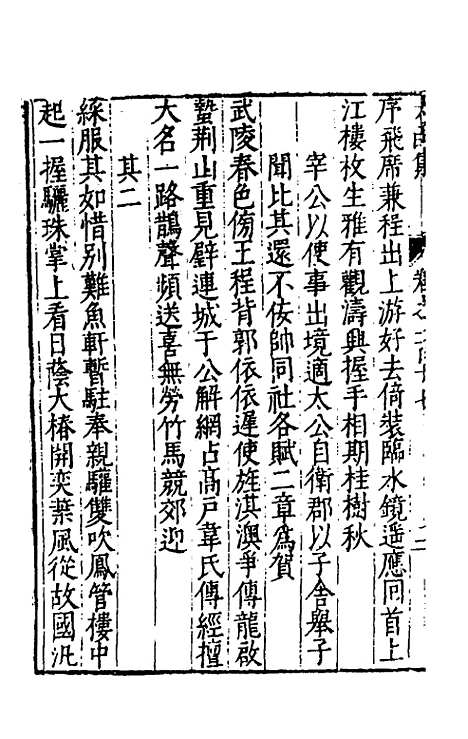 序飛席兼程出上游好去倚裝臨水鏡遥應回首上
江樓枚生雅有觀濤興握手相期桂樹秋
宰公以使事出境適太公自衛郡以子舍舉子
聞比其還不佞帥同社各賦二章爲賀
武陵春色傍王程背郭依依遲使旌淇澳爭傳龍啟
蟄荆山重見璧連城于公解網占高戸韋氏傳經擅
大名一路鵲聲頻送喜無勞竹馬競郊迎
其二
綵服其如惜別難魚軒暫駐奉親驩雙吹鳳管樓中
起一握驪珠掌上看日蔭大椿開奕葉風從故國汎